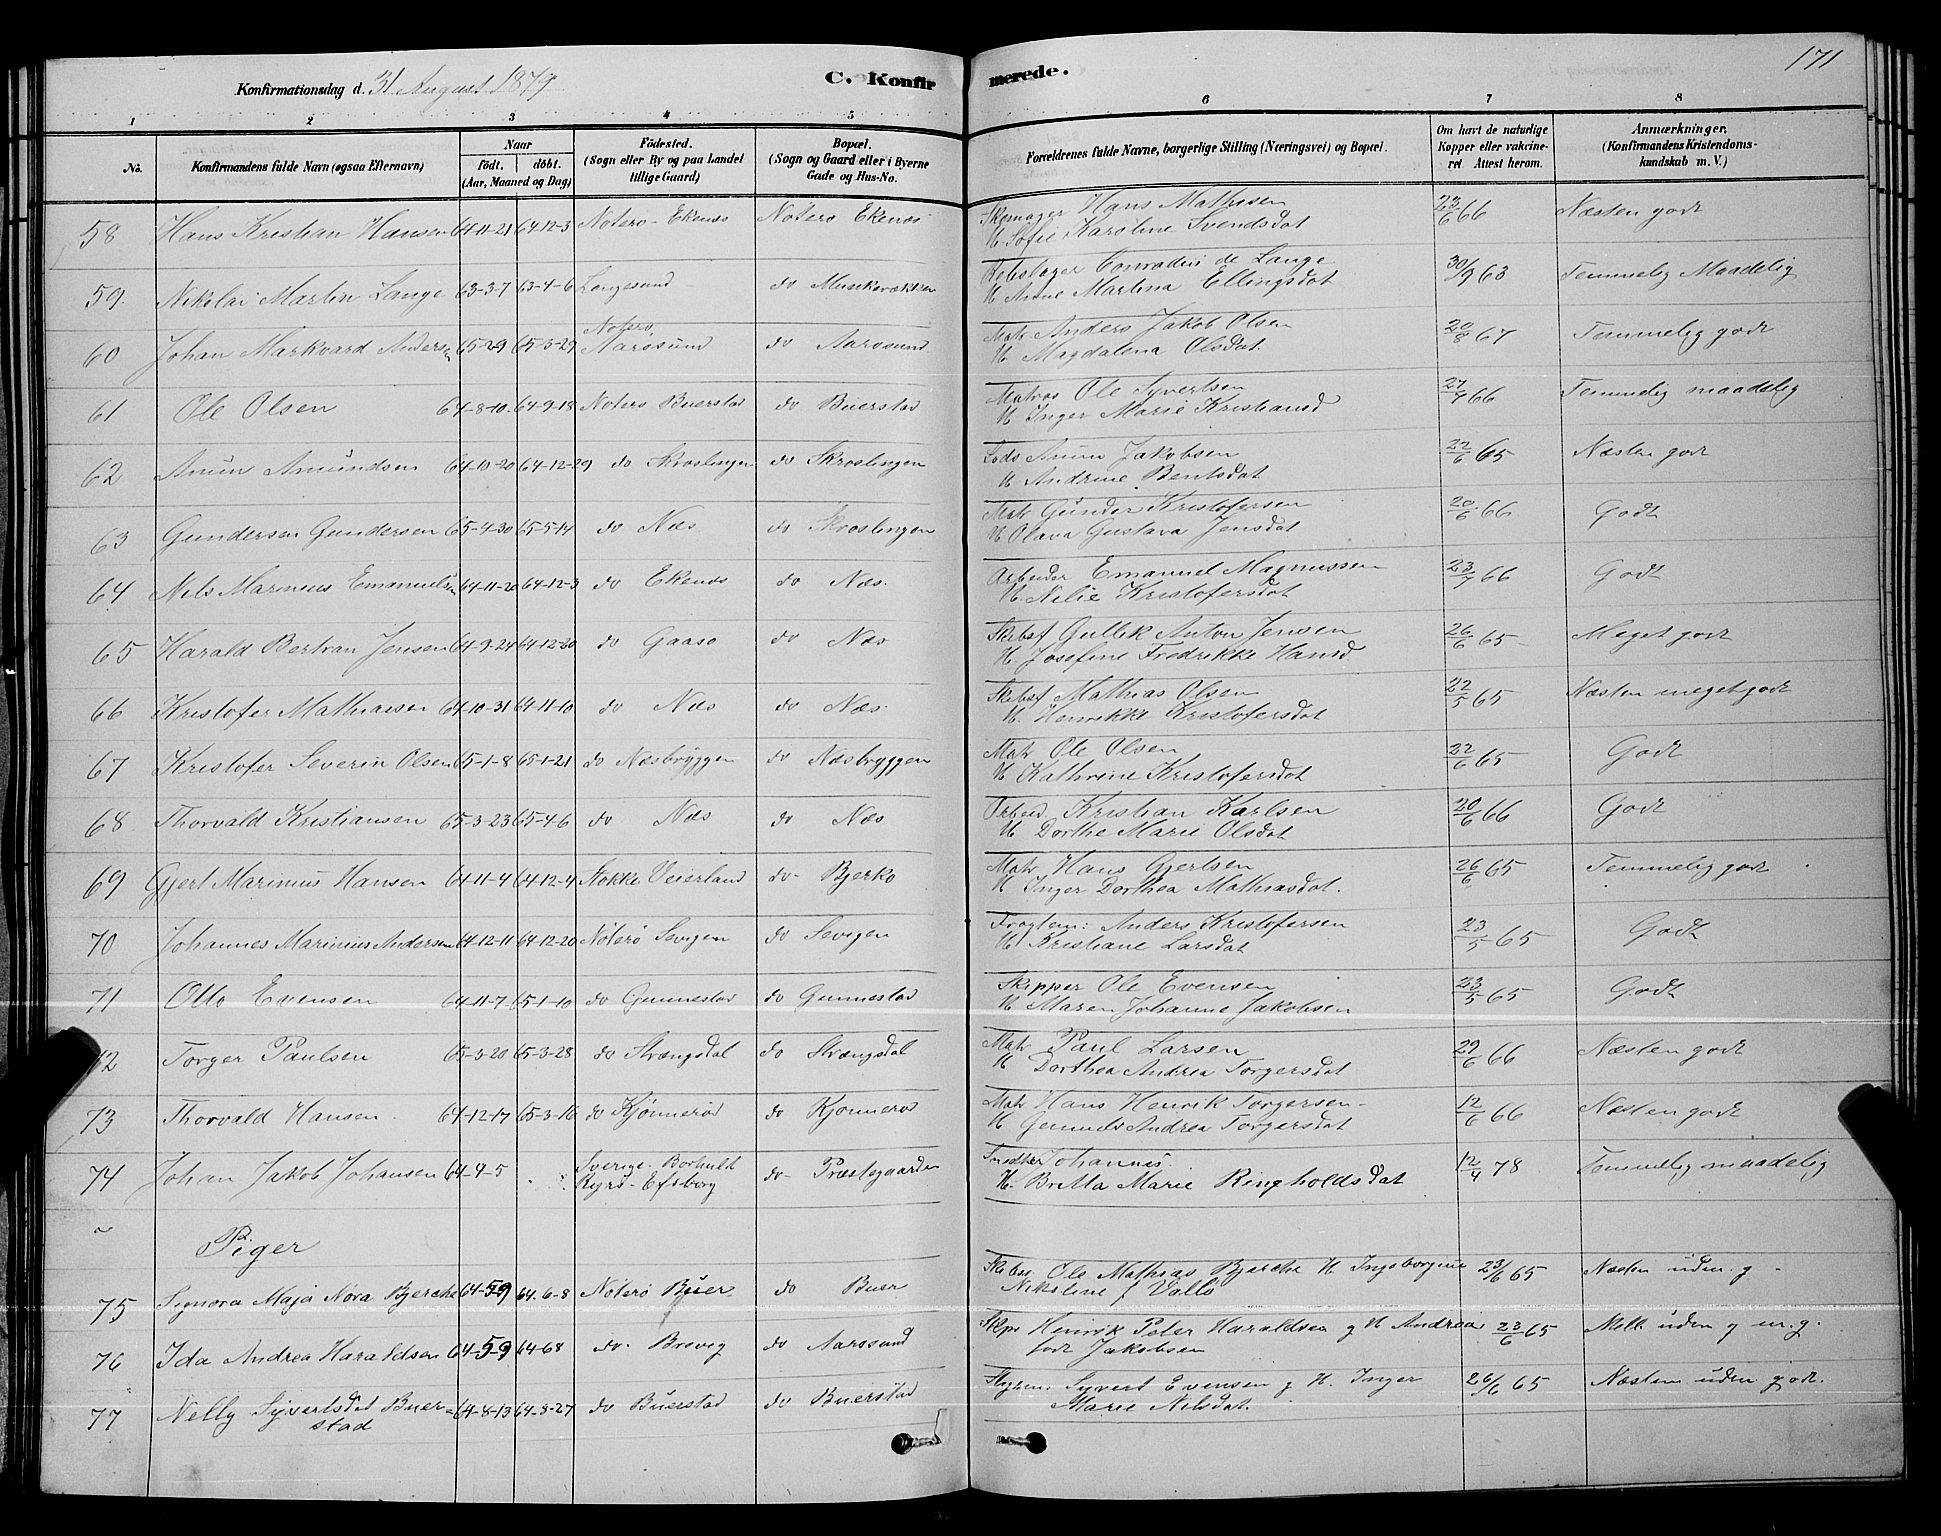 171
Konfirmationsdag d. 31 August 1879
C. Konfirmerede.
1 2 3 4 5 6 7 8
No.
Konfirmandens fulde Navn (ogsaa Efternavn)
Naar
født. døbt.
(Aar, Maaned og Dag)
Fødested.
(Sogn eller By og paa Landet
tillige Gaard)
Bopæl.
(Sogn og Gaard eller i Byerne
Gade og Hus-No.
Forældrenes fulde Navne, borgerlige Stilling (Næringsvei) og Bopæl.
Om havt de naturlige
Kopper eller vakcine-
ret Attest herom.
Anmærkninger.
(Konfirmandens Kristendoms-
kundskab m. V.)
58 Hans Kristian Hansen 64-11-21 64-12-3 Nøterø - Ekenæs Nøterø Ekenæs Skomager Hans Mathisen 23/6 66 Næsten godt
H. Sofie Karoline Svendsdat
59. Nikolai Martin Lange 63-3-7 63-4-6 Langesund do Rebslager Conradus de Lange 30/9 63 Temmelig Maadelig
H. Anne Martina Ellingsdat
60 Johan Markvard Anders 65-2-9 65-3-29 Nøterø, do Aarøsund Matr Anders Jakob Olsen 20/8 67 Temmelig godt
Aarøsund H Magdalena Olsdat.
61 Ole Olsen 64-8-10. 64-9-18 Nøterø Buerstad do Buerstad Matros Ole Syvertsen 27/9 66 Temmelig maadelig
H Inger Marie Kristiansd
62 Anun Amundsen 64-10-20 64-12-29 do Skroslingen do Skroslingen Lods Anun Jakobsen 22/6 65 Næsten godt
H Andrine Bentsdat
63 Gundersen Gundersen 65-4-30 65-5-14 do Næs do Skroslingen Matr Gunder Kristofersen 20/6 66 Godt
H Olava Gustava Jensdat
64 Nils Marinius Emanuelsen 64-11-20 64-12-3 do Ekenæs do Næs. Arbeider Emanuel Magnussen 23/7 66 Godt
H. Nilie Kristofersdat
65 Harald Bertran Jensen 64-9-24 64-12-30 do Gaasø do Næs Skibsf Gullik Anton Jensen 26/6 65 Meget godt
H. Josefine Fredrikke Hansd.
66 Kristofer Mathiasen 64-10-31 64-11-10 do Næs do Næs. Skibsf Mathias Olsen 22/5 65 Næsten meget godt
H. Henrikke Kristofersdat
67 Kristofer Severin Olsen 65-1-8 65-1-21 do Næsbryggen do Næsbryggen Matr Ole Olsen 22/6 65 Godt
H Kathrine Kristofersdat
68 Thorvald Kristiansen 65-3-23 65-4-6 do Næs do Næs Arbeid Kristian Karlsen 20/6 66 Godt
H Dorthe Marie Olsdat
69 Gjert Marinius Hansen 64-11-4 64-12-4 Stokke Veierland do- Bjerkø Matr Hans Gjertsen 26/6 65 Temmelig godt
H Inger Dorthea Mathiasdat.
70 Johannes Marinius Andersen 64-12-11 64-12-20 Nøterø Sevigen do Sevigen Fragtem: Anders Kristofersen 23/5 65 Godt
H Kristiane Larsdat
71 Otto Evensen 64-11-7 65-1-10 do Gunnestad do Gunnestad Skipper Ole Evensen 23/5 65 Godt
H Maren Johanne Jakobsen
72 Torger Paulsen 65-3-20 65-3-28 do Strængsdal do Strængsdal Matr Paul Larsen 29/6 66 Næsten godt
H Dorthea Andrea Torgersdat
73 Thorvald Hansen. 64-12-17 65-3-16 do Kjønnerød do Kjønnerød Matr Hans Henrik Torgersen 12/6 66 Næsten godt
H Andrea Torgersdat
74 Johan Jakob Johansen 64-4-5 Sverige- do- Præstegaarden Johannes 12/4 78 Temmelig maadelig
H. Britta Marie Ringholdsdat
~ Piger
75 Signora Maja Nora Bjerche 64-5-9 64.6-8 Nøterø Buer do Buer Skibsf Ole Mathias Bjerche H Ingeborgine 23/6 65 Næsten uden g -
Nikoline f Vallø
76 Ida Andrea Haraldsen 64-5-9 64-6-8 do. Brevig do Aarøsund Skps Henrik Peter Haraldsen g H Andrea 23/6 65 Mell uden g m.g.
født Jakobsen
77 Nelly Syvertsdat Buer= 64-8-13 64-8-27 do Buerstad do Buerstad Syvert Evensen g H. Inger 26/6 65 Næsten uden godt.
stad Marie Nilsdat.